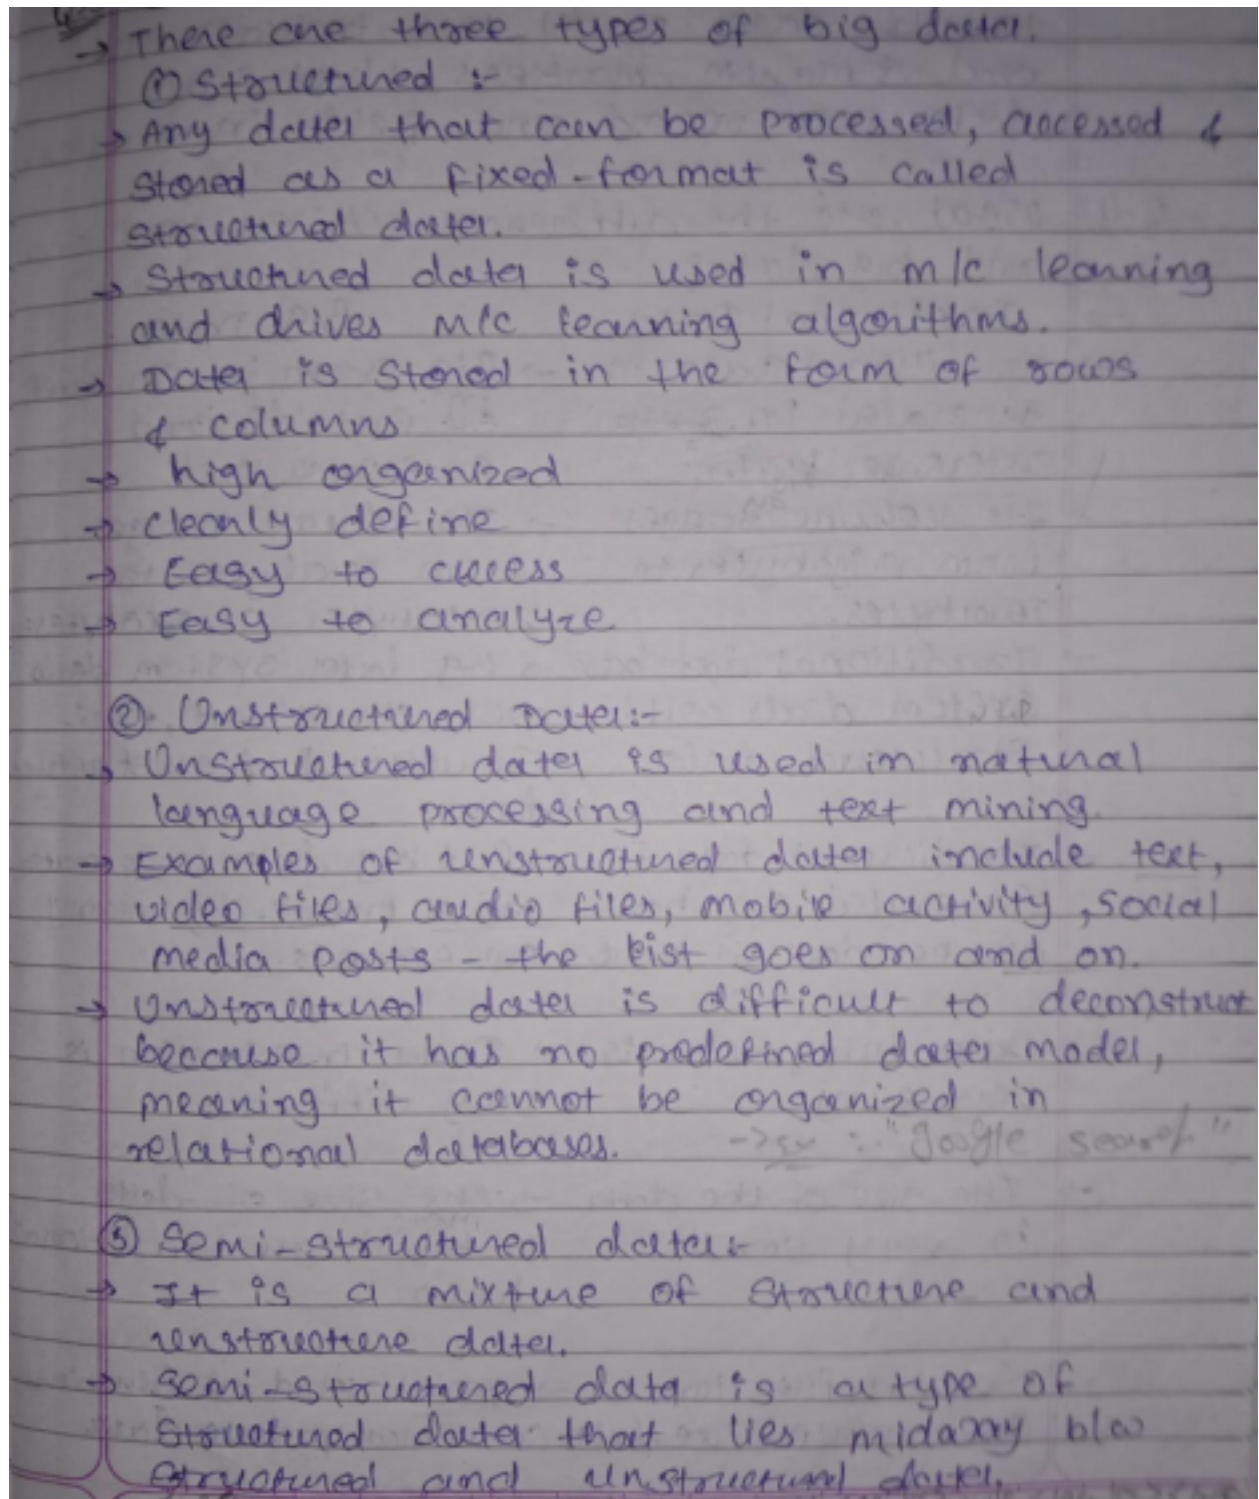 → There are three types of big data.
① Structured :-
→ Any data that can be processed, accessed &
stored as a fixed-format is called
structured data.
→ Structured data is used in m/c learning
and drives m/c learning algorithms.
→ Data is stored in the form of rows
& columns
→ high organized
→ clearly define
→ Easy to access
→ Easy to analyze
② Unstructured Data:-
→ Unstructured data is used in natural
language processing and text mining.
→ Examples of unstructured data include text,
video files, audio files, mobile activity, social
media posts - the list goes on and on.
→ Unstructured data is difficult to deconstruct
because it has no predefined data model,
meaning it cannot be organized in
relational databases. → ex : "google search"
③ Semi-structured data:-
→ It is a mixture of structure and
unstructure data.
→ semi-structured data is a type of
structured data that lies midway b/w
structured and unstructured data.